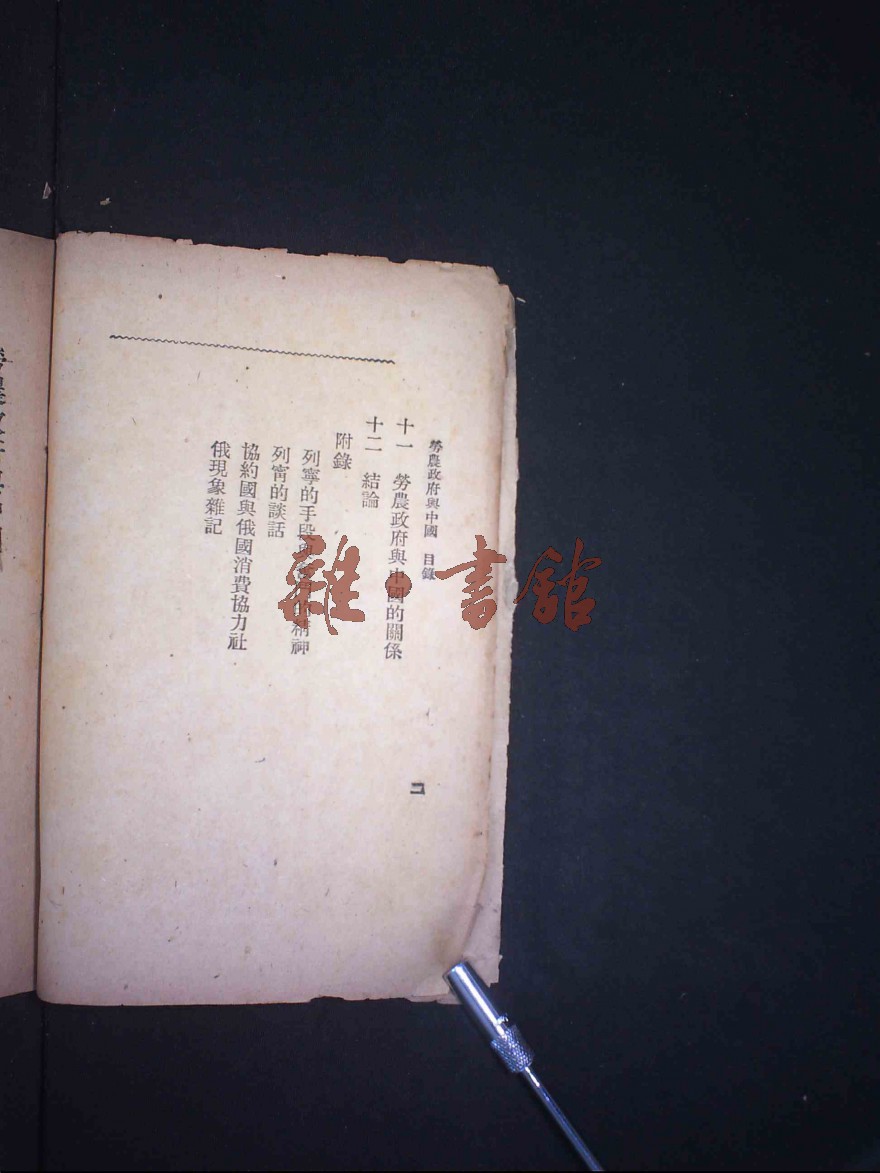 勞農政府與中國 目錄
十一 勞農政府與中國的關係
十二 結論
附錄
列寧的手段與 的精神
列甯的談話
協約國與俄國消費協力社
俄現象雜記
二
雜·書館